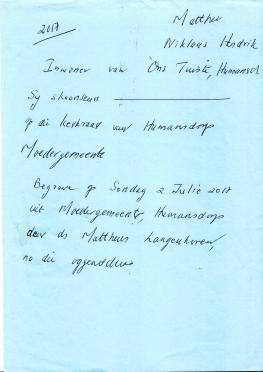 2017
Mattheu
Niklaas Hendrik
Inwoner van 'Ons Tuiste, Humansd
Sy skoonseun
op die kerkraad van Humansdorp
Moedergemeente
Begrawe op Sondag 2 Julie 2017
uit Moedergemeente, Humansdorp
deur ds Mattheus Langenhoven,
na die oggenddiens